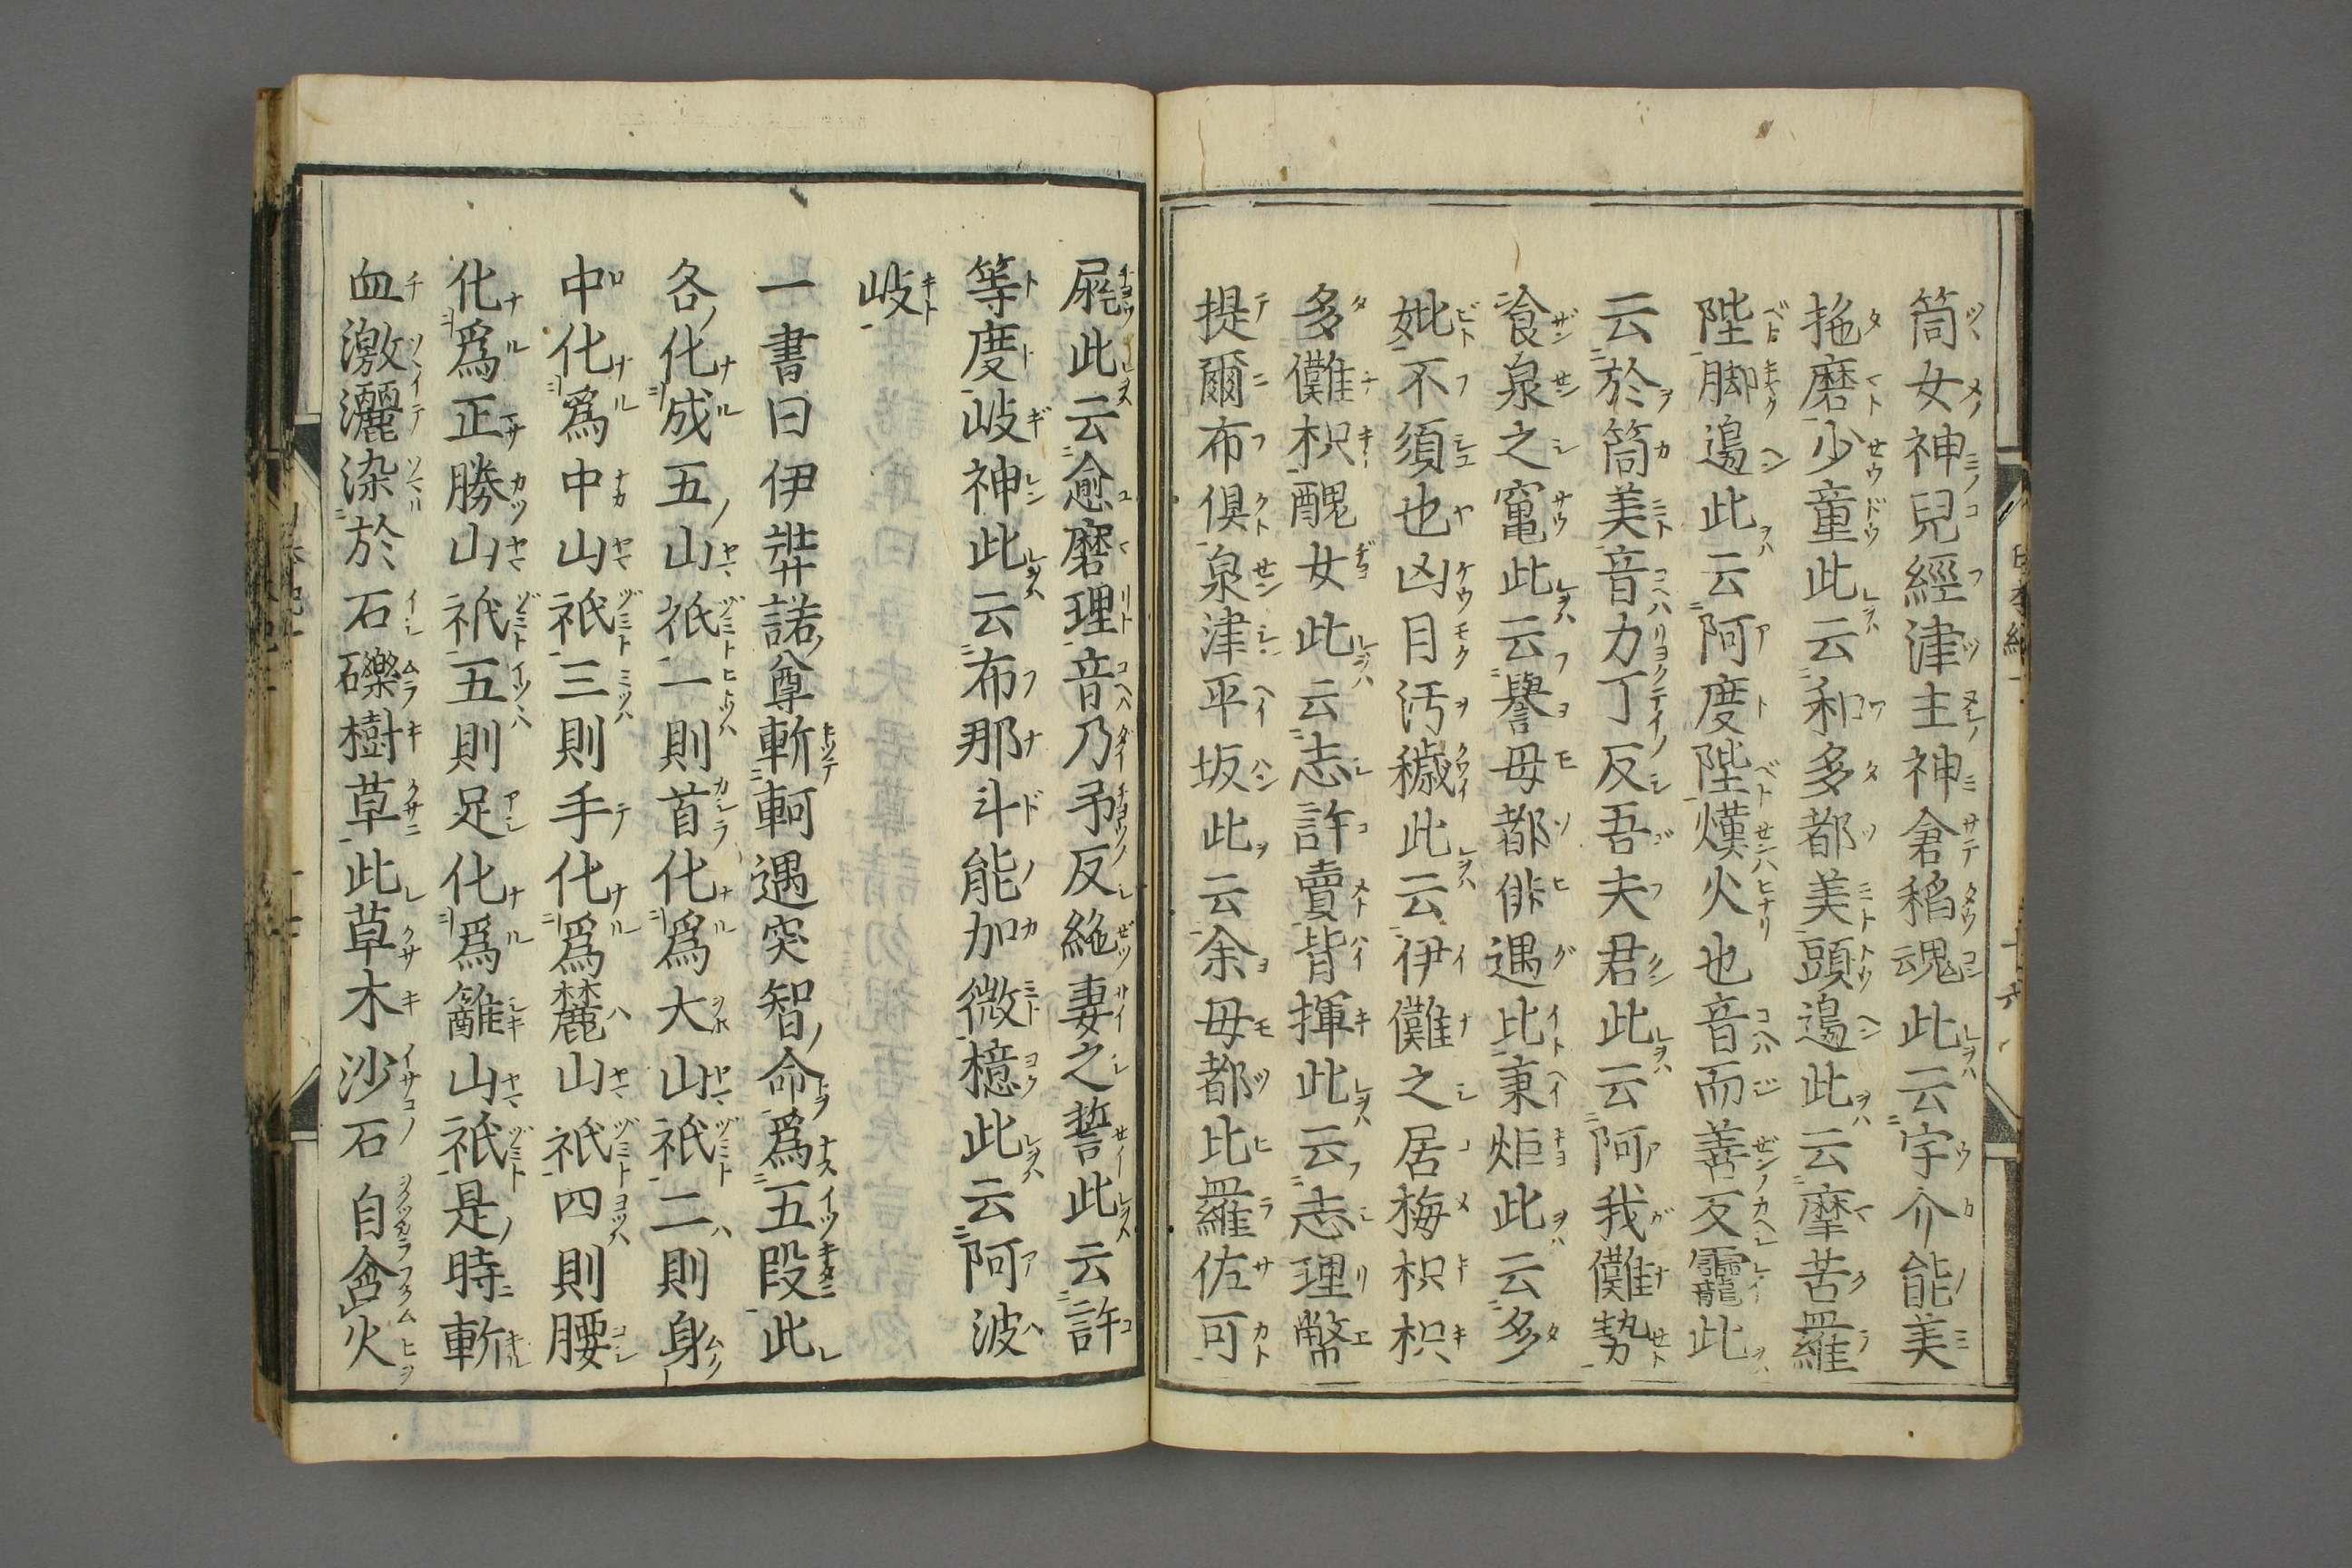 筒女神兒經津主神倉稻魂此云宇介能美
拕磨少童此云和多都美頭邉此云摩苦羅
陛脚邉此云阿度陛熯火也音而善反龗此
云於箇美音力丁反吾夫君此云阿我儺勢
飡泉之竃此云譽母都俳遇比秉炬此云多
妣不須也凶目汚穢此云伊儺之居梅枳枳
多儺枳醜女此云志許賣背揮此云志理幣
提爾布倶泉津平坂此云余母都比羅佐可
𡱁此云愈磨理音乃弔反絶妻之誓此云許
等度岐神此云布那斗能加微檍此云阿波
岐
一書曰伊弉諾尊斬軻遇突智命爲五段此
各化成五山祇一則首化爲大山祇二則身
中化爲中山祇三則手化爲麓山祇四則腰
化爲正勝山祇五則足化爲䨄山祇是時斬
血激灑染於石礫樹草此草木沙石自含火